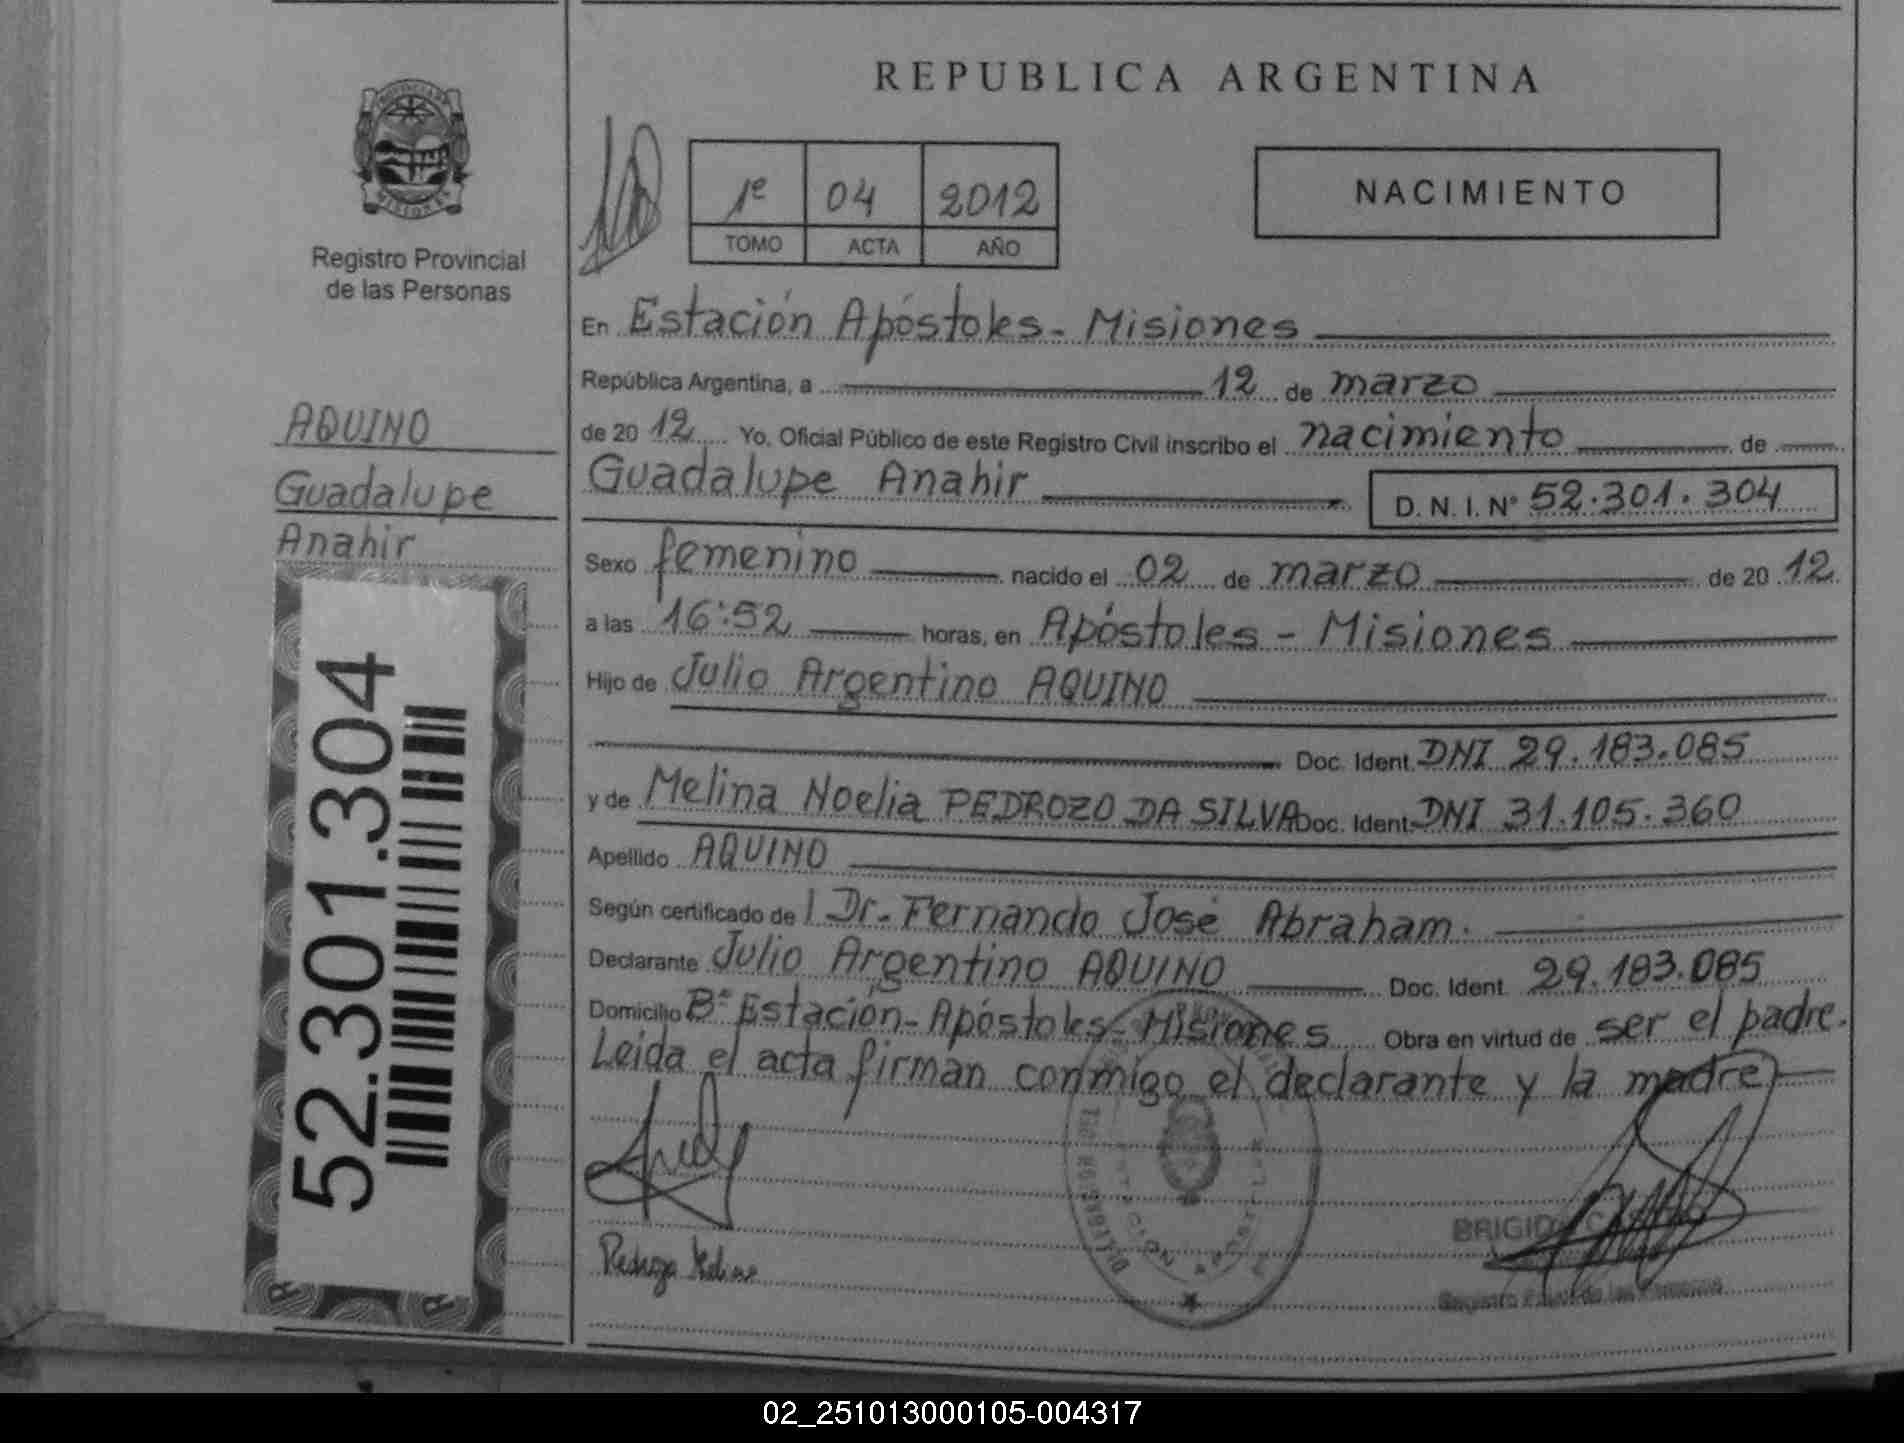 REPUBLICA ARGENTINA
PROVINCIA DE
MISIONES
Registro Provincial
de las Personas
1º 04 2012
TOMO ACTA AÑO
NACIMIENTO
En Estación Apóstoles - Misiones
República Argentina, a 12 de marzo
de 20 12 Yo, Oficial Público de este Registro Civil inscribo el nacimiento de
Guadalupe Anahir D. N. I. Nº 52.301.304
AQUINO
Guadalupe
Anahir
Sexo femenino nacido el 02 de marzo de 20 12
a las 16:52 horas, en Apóstoles - Misiones
Hijo de Julio Argentino AQUINO
Doc. Ident. DNI 29.183.085
y de Melina Noelia PEDROZO DA SILVA Doc. Ident. DNI 31.105.360
Apellido AQUINO
Según certificado de Dr. Fernando José Abraham.
Declarante Julio Argentino AQUINO Doc. Ident. 29.183.085
Domicilio Bº Estación - Apóstoles - Misiones Obra en virtud de ser el padre.
Leida el acta firman conmigo el declarante y la madre
52.301.304
BRIGIDA
Registro de las Personas
02_251013000105-004317